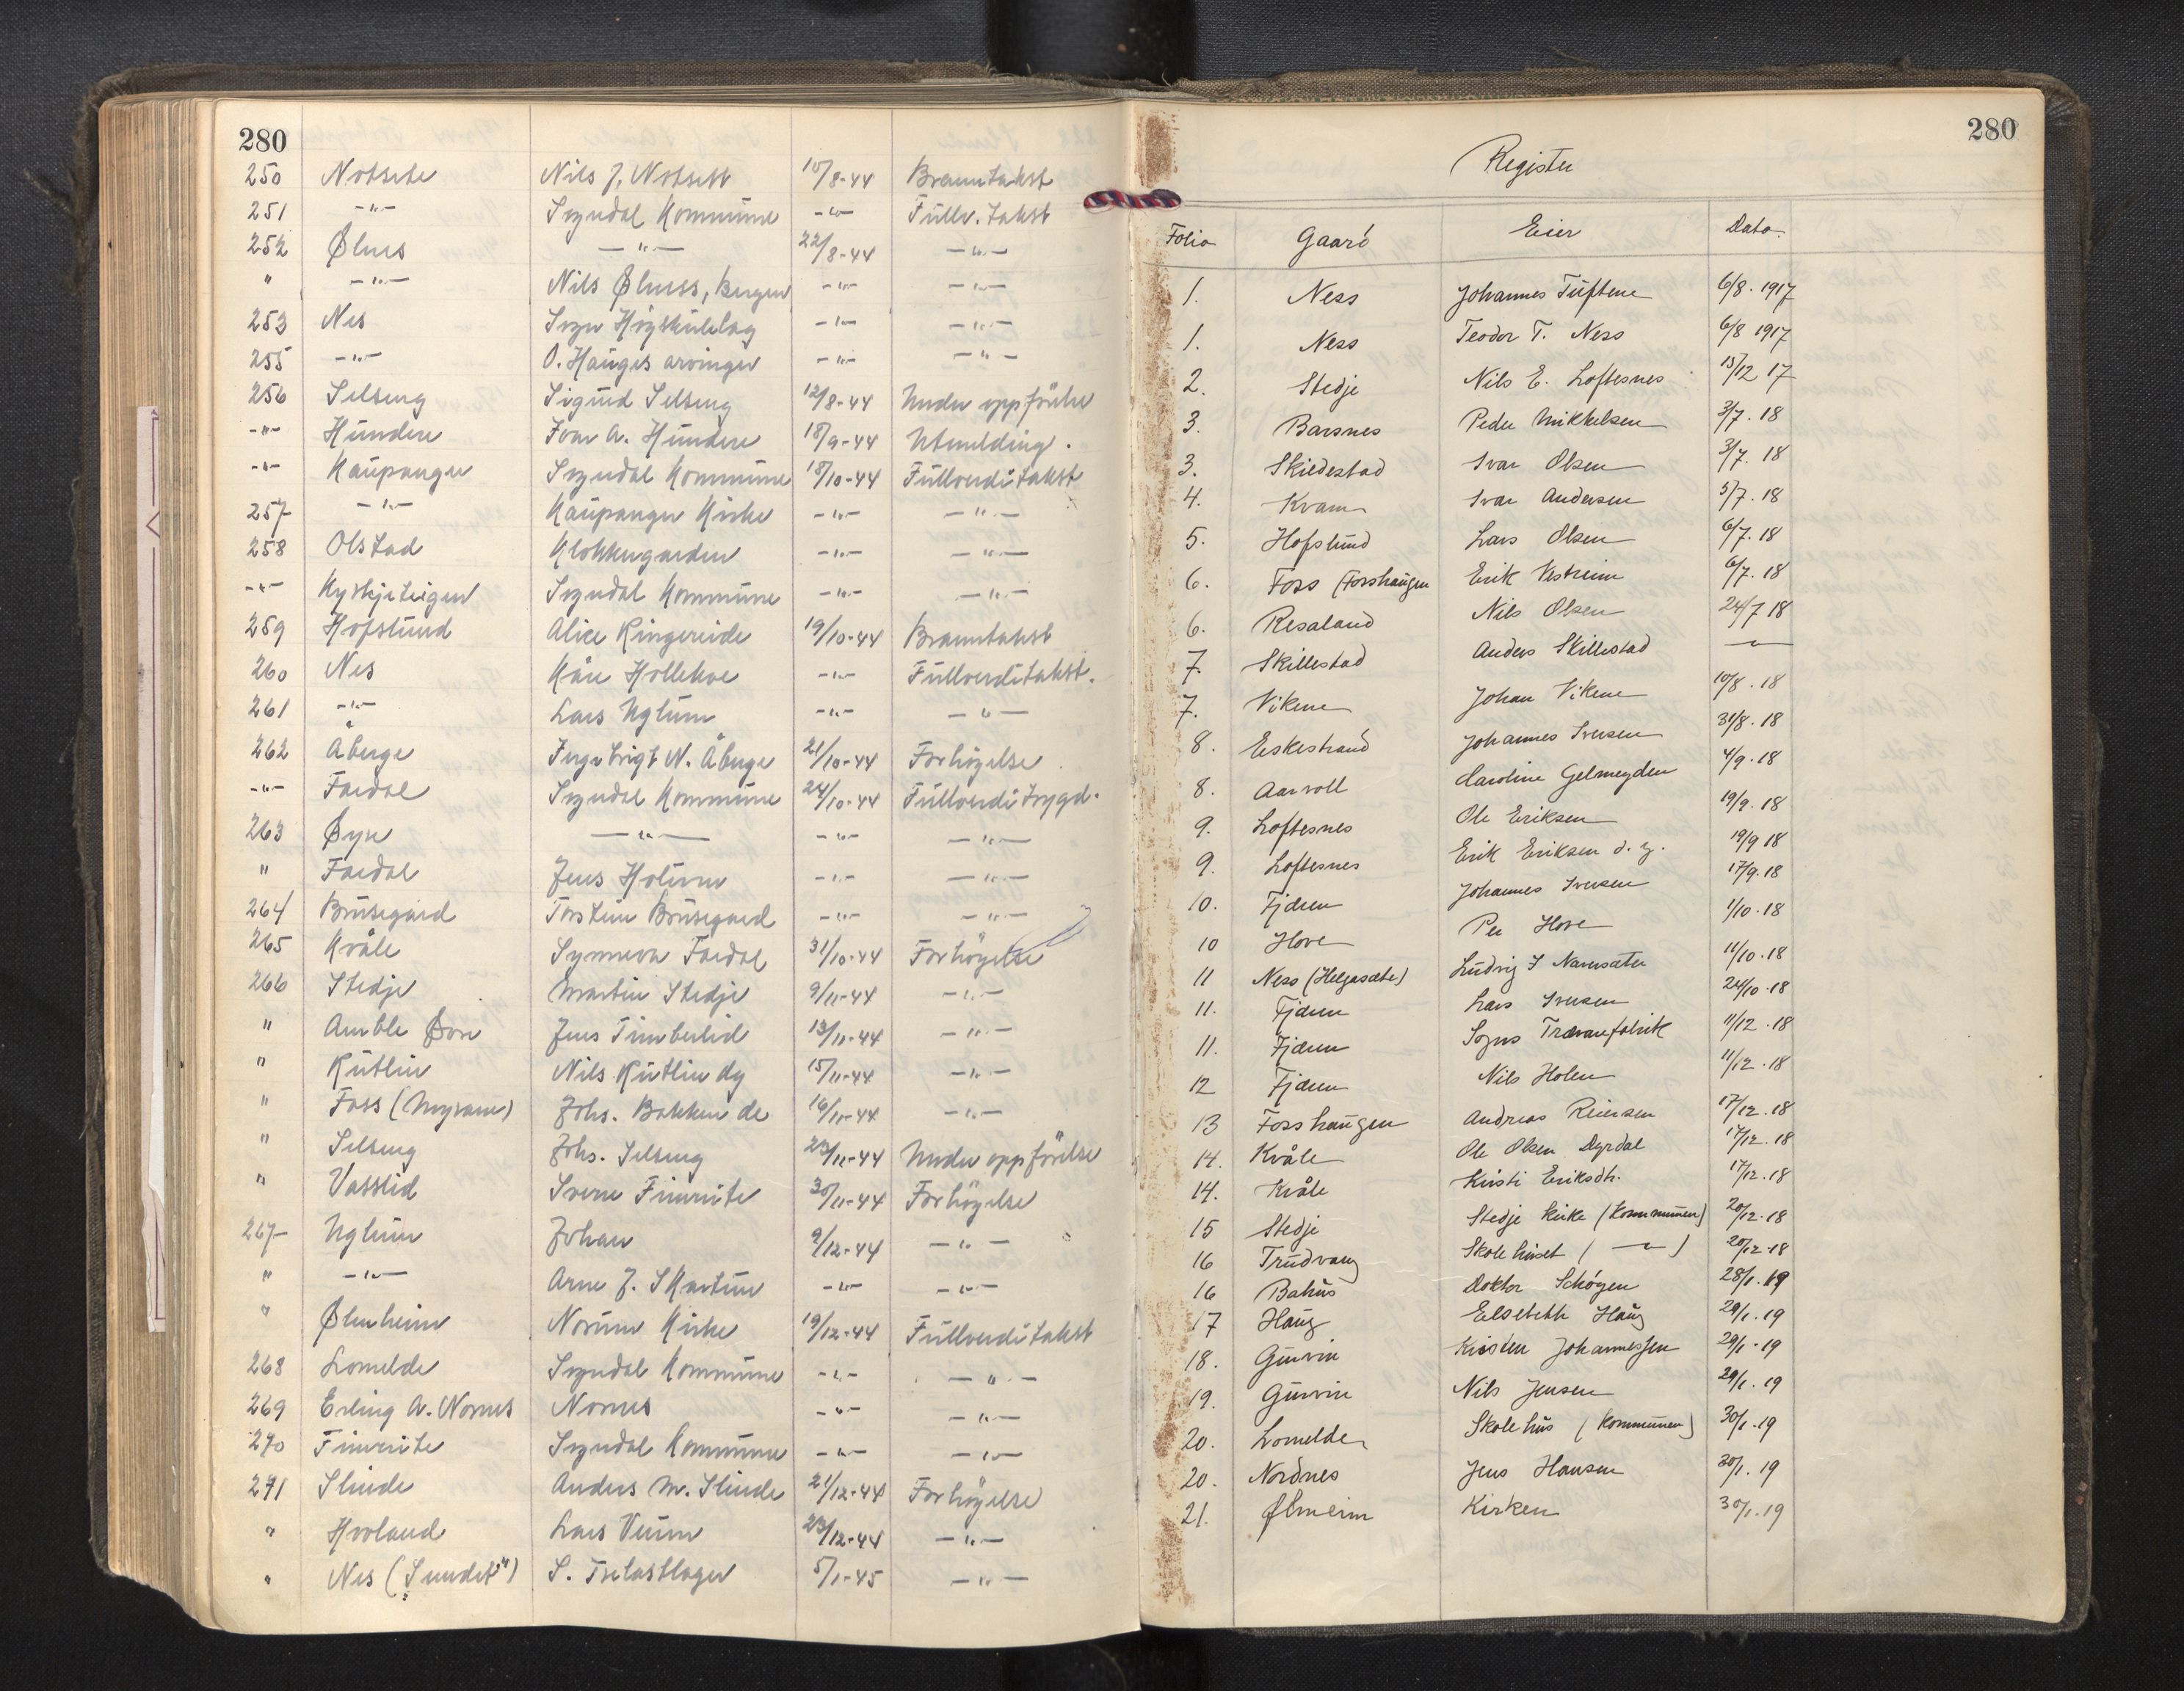 280
250 Notsete Nils J. Notsett 15/8-44 Branntakst
251 -"- Sogndal Kommune -"- Fullv. takst
252 Ølnes -"- 22/8-44 -"-
" -"- Nils Ølness, Bergen -"- -"-
253 Nes Sogn Høgskulelag -"- -"-
255 -"- O. Hauges arvinger -"- -"-
256 Selseng Sigurd Selseng 12/8-44 Under oppförelse
-"- Hundere Ivar A. Hundere 18/9-44 Utmelding.
-"- Kaupanger Sogndal Kommune 18/10-44 Fullverditakst
257 -"- Kaupanger Kirke -"- -"-
258 Olstad Klokkergarden -"- -"-
-"- Kyrkjeteigen Sogndal Kommune -"- -"-
259 Hofslund Alice Ringereide 19/10-44 Branntakst
260 Nes Kåre Hollekve -"- Fullverditakst.
261 -"- Lars Uglum -"- -"-
262 Åberge Ingebrigt N. Åberge 21/10-44 Forhögelse
-"- Fardal Sogndal Kommune 24/10-44 Fullverdi trygd.
263 Øyre -"- -"- -"-
" Fardal Jens Holum -"- -"-
264 Brusegard Torstein Brusegard -"- -"-
265 Kvåle Synneva Fardal 31/10-44 Forhögelse
266 Stedje Martin Stedje 9/11-44 -"-
" Amble Øvre Jens Timberlid 13/11-44 -"-
" Rutlin Nils Rutlin dy 15/11-44 -"-
" Foss (Myrane) Johs. Bakken de 16/11-44 -"-
" Selseng Johs. Selseng 23/11-44 Under oppförelse
" Vatslid Sverre Fimreite 30/11-44 Forhögelse
267 Uglum Johan 9/12-44 -"-
" -"- Arne J. Skartun -"- -"-
" Ølmheim Norum Kirke 19/12-44 Fullverditakst
268 Lomelde Sogndal Kommune -"- -"-
269 Erling A. Nornes Nornes -"- -"-
270 Fimreite Sogndal Kommune -"- -"-
271 Slinde Anders M. Slinde 21/12-44 Forhögelse
" Hovland Lars Vium 23/12-44 -"-
" Nes ("Sundet") S. Trelastlager 5/1-45 -"-
280
Register
Folio Gaard Eier Dato
1. Ness Johannes Tuftene 6/8. 1917
1. Ness Teodor T. Ness 6/8 1917
2. Stedje Nils E. Loftesnes 15/12 17
3. Barsnes Peder Mikkelsen 3/7. 18
3. Skildestad Ivar Olsen 3/7. 18
4. Kvam Ivar Andersen 5/7. 18
5. Hofslund Lars Olsen 6/7. 18
6. Foss (Forshaugen Erik Vestreim 6/7. 18
6. Resaland Nils Olsen 24/7 18
7. Skillestad Anders Skillestad -"-
7. Vikene Johan Vikene 10/8. 18
8. Eskestrand Johannes Iversen 31/8. 18
8. Aarvoll Caroline Gelmeyden 4/9. 18
9. Loftesnes Ole Eriksen 19/9. 18
9. Loftesnes Erik Eriksen d. y. 19/9 18
10. Fjæren Johannes Iversen 17/9. 18
10 Hove Per Hove 1/10. 18
11 Ness (Helgasæte) Ludvig J Navarsæter 11/10. 18
11. Fjæren Lars Iversen 24/10. 18
11. Fjæren Sogns Trævarefabrik 11/12. 18
12 Fjæren Nils Holen 11/12. 18
13 Fosshaugen Andreas Reiersen 17/12. 18
14. Kvåle Ole Olsen Dyrdal 17/12. 18
14. Kvåle Kirsti Eriksdtr. 17/12. 18
15 Stedje Stedje kirke (Kommunen) 20/12-18
16 Trudvang Skolehuset ( -"- ) 20/12-18
16 Bahus Doktor Schøyen 28/1. 19
17 Haug Elsebeth Haug 29/1. 19
18. Gurvin Kirsten Johannessen 29/1-19
19. Gurvin Nils Jensen 29/1. 19
20. Lomelde Skolehus (Kommunen) 30/1. 19
20. Nordnes Jens Hansen 30/1. 19
21. Ølmeim Kirken 30/1. 19